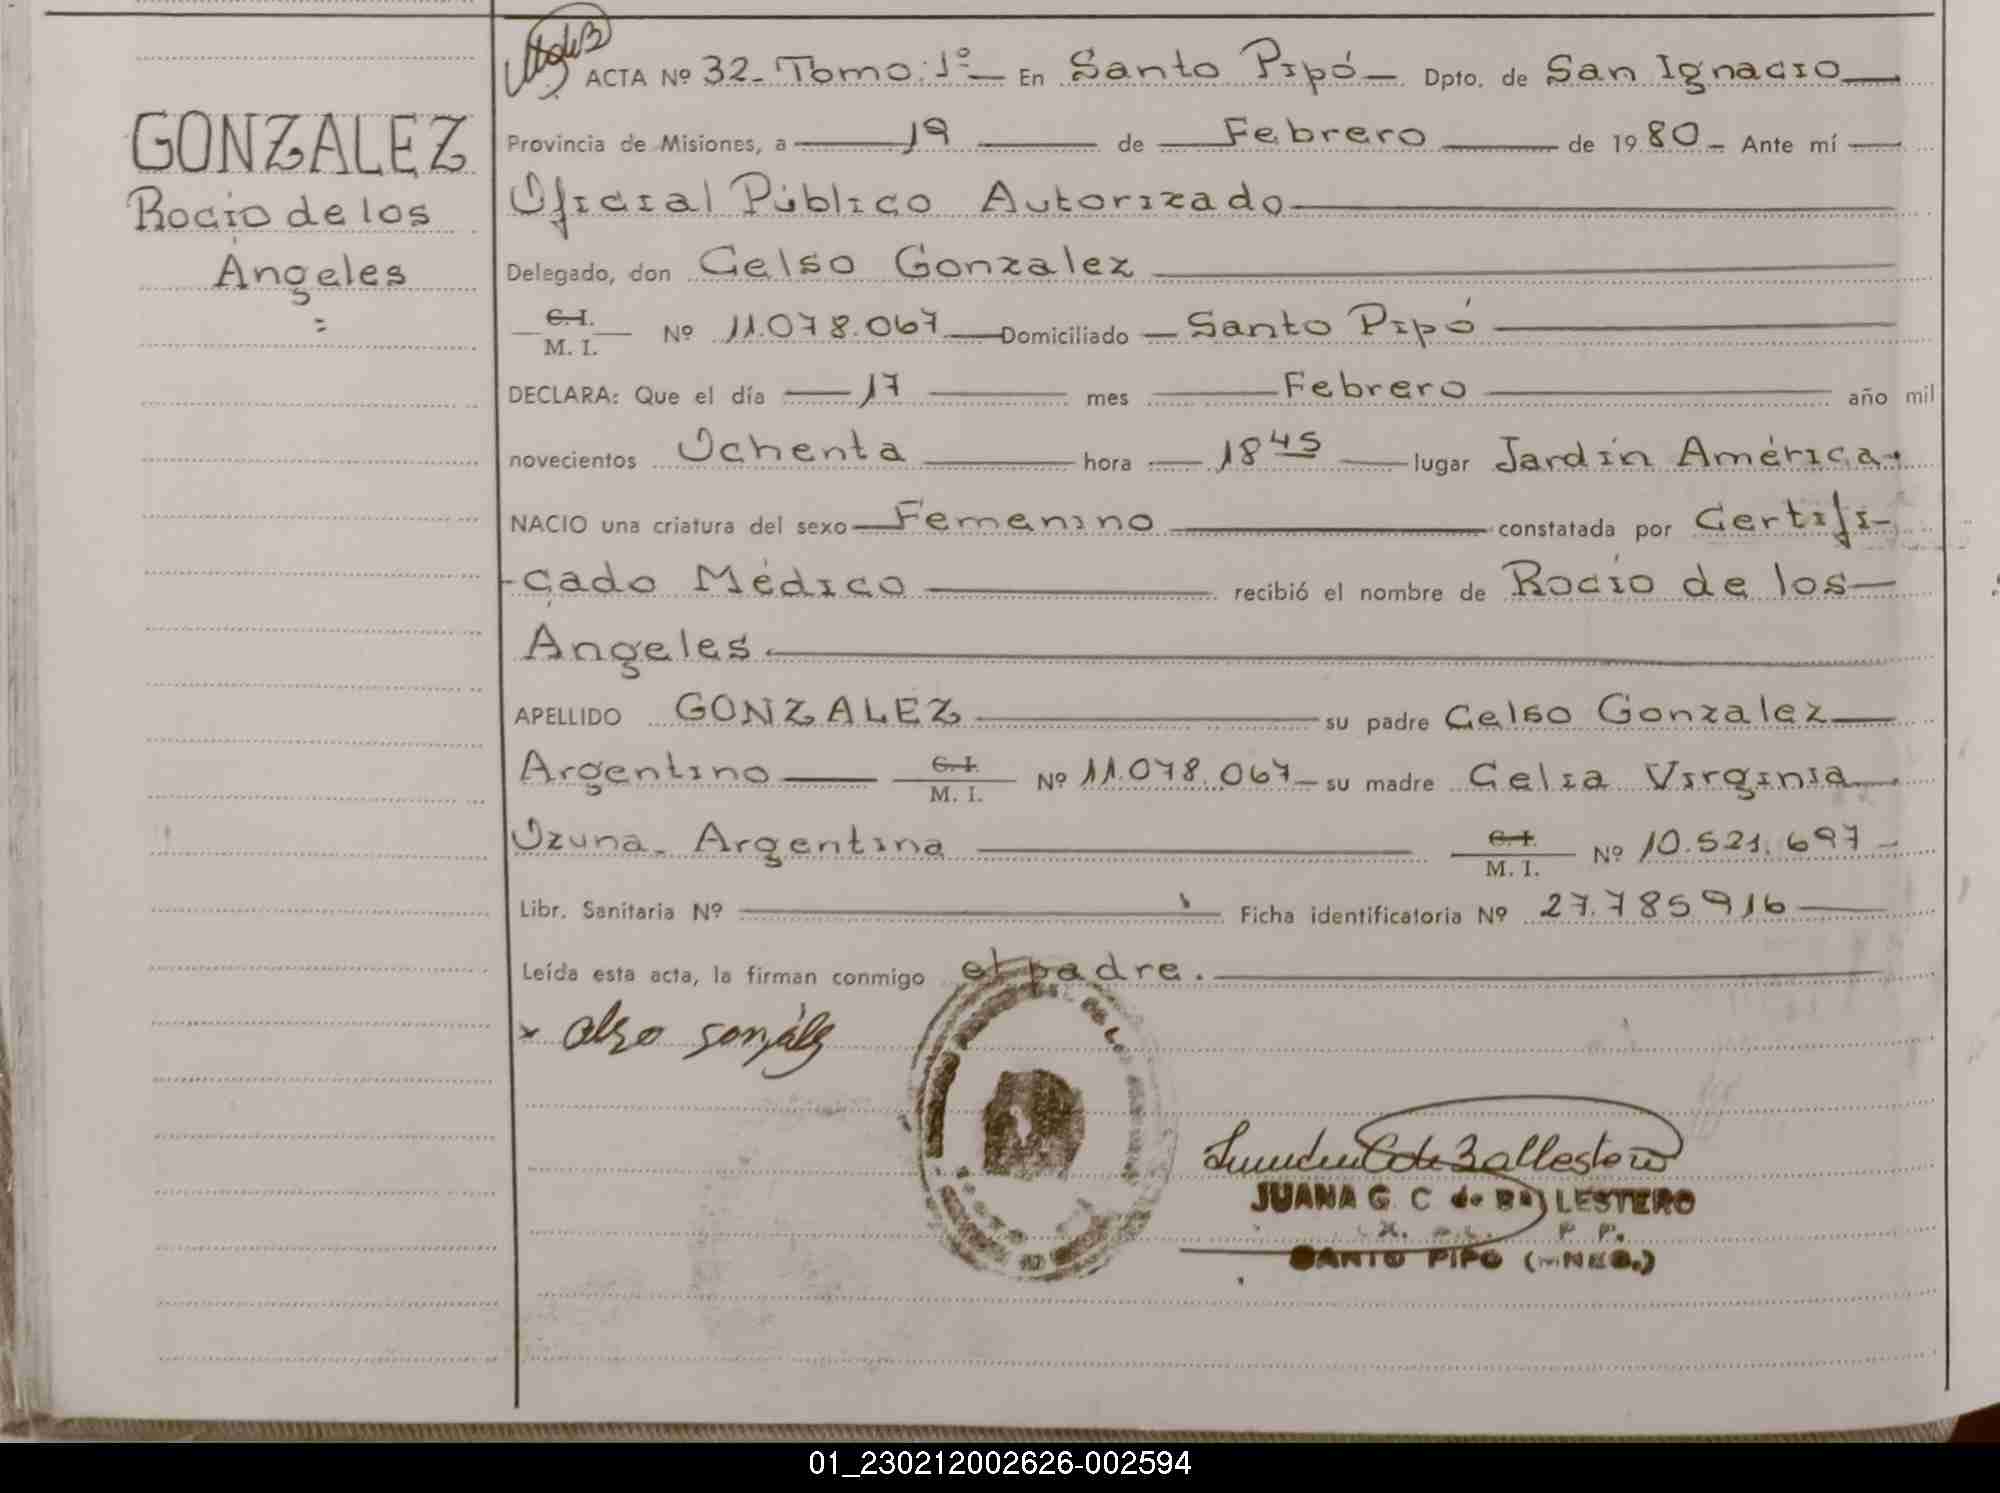 GONZALEZ
Rocío de los
Angeles
ACTA Nº 32- Tomo: 1º En Santo Pipó Dpto. de San Ignacio
Provincia de Misiones, a 19 de Febrero de 1980 - Ante mí
Oficial Público Autorizado
Delegado, don Celso Gonzalez
C. I.
M. I. Nº 11.078.067 Domiciliado Santo Pipó
DECLARA: Que el día 17 mes Febrero año mil
novecientos Ochenta hora 18 45 lugar Jardín América.
NACIO una criatura del sexo Femenino constatada por Certifi-
-cado Médico recibió el nombre de Rocío de los
Angeles.
APELLIDO GONZALEZ su padre Celso Gonzalez
Argentino C. I.
M. I. Nº 11.078.067 su madre Celia Virginia
Ozuna - Argentina C. I.
M. I. Nº 10.521.697 -
Libr. Sanitaria Nº Ficha identificatoria Nº 27.785916
Leída esta acta, la firman conmigo el padre.
x Celso González
C de Ballestero
JUANA G. C de BALLESTERO
SANTO PIPO (MNES.)
01_230212002626-002594